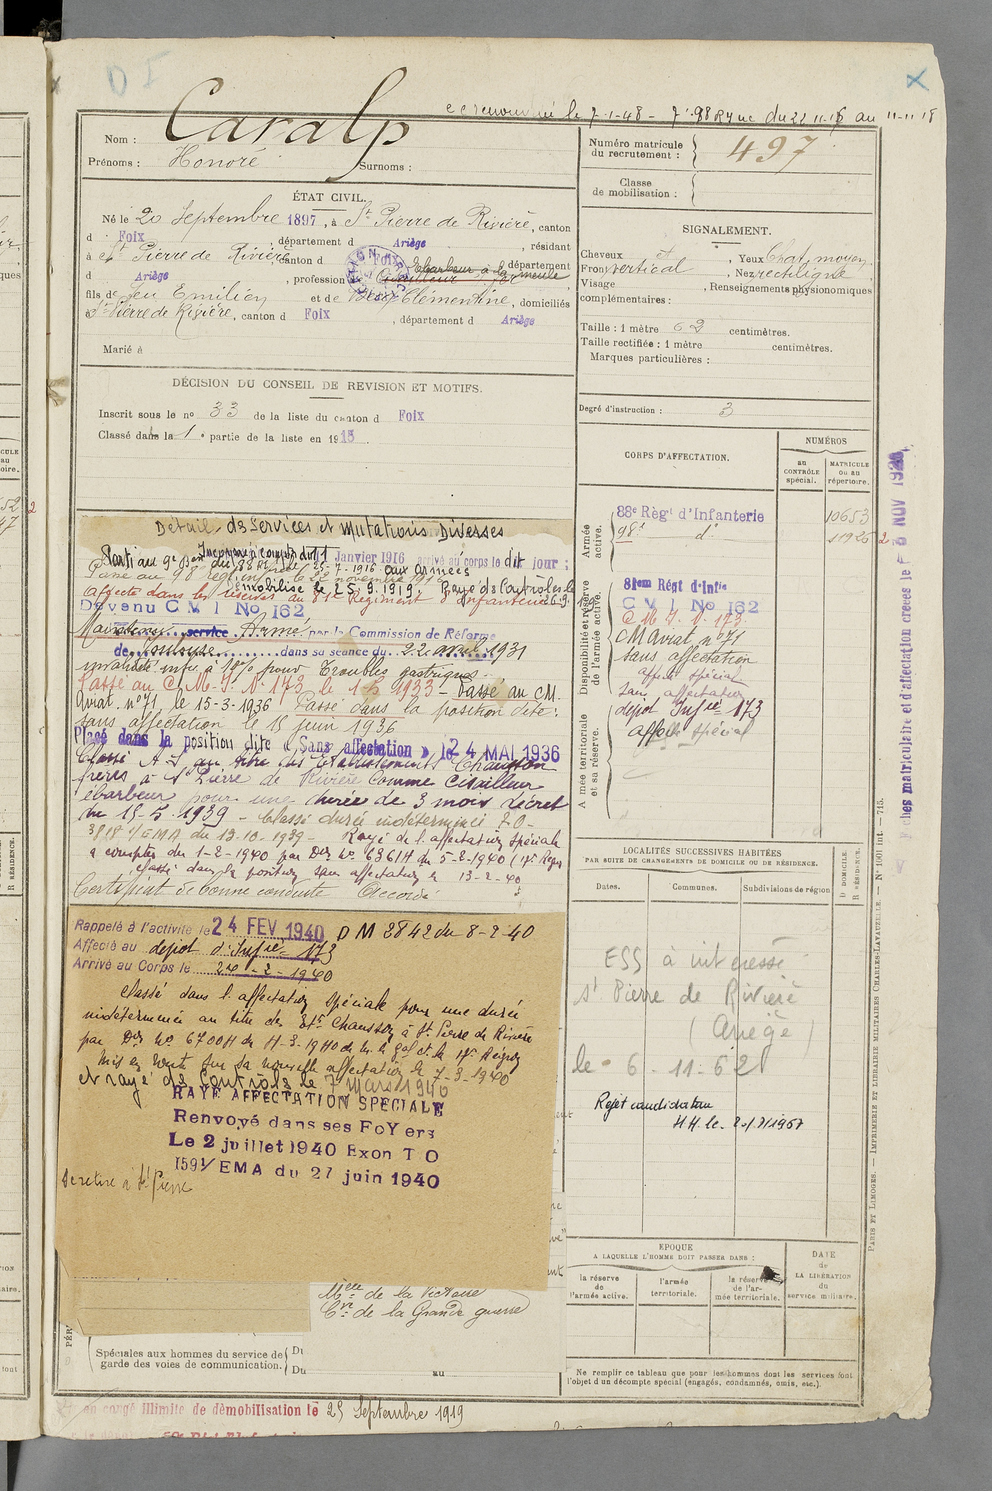 D I
le 7-1-48 - 98 du 22 11-16 au 11-11-18
Caralp
Nom :
Prénoms : Honoré Surnoms :
ÉTAT CIVIL.
Né le 20 Septembre 1897, à St Pierre de Rivière, canton
d Foix département d Ariège, résidant
à St Pierre de Rivière canton d Foix département
d Ariège, profession ébarbeur à la meule
fils de feu Emilien et de Clémentine, domiciliés
à St Pierre de Rivière, canton d Foix, département d Ariège
Marié à
DÉCISION DU CONSEIL DE REVISION ET MOTIFS.
Inscrit sous le no 33 de la liste du canton d Foix
Classé dans la 1e partie de la liste en 1915
Détail des Services et Mutations Diverses
Incorporé à compter du 11 Janvier 1916 arrivé au corps le dit jour ;
Parti au 9e 25-7-1916 aux armées
Passé au 98 Rég. inf. le 22 novembre 1916
Démobilisé le 25.9.1919. Rayé des Contrôles le 26.9.19
Affecté dans les réserves au 81e Régiment d'Infanterie
Devenu C M I No 162
Maintenu service Armé par la Commission de Réforme
de Toulouse dans sa séance du 22 avril 1931
invalidité infre à 10% pour Troubles gastriques.
Passé au C. M. I. No 173 le 1-5 1933 - Passé au C M.
Aviat. no 71, le 15-3-1936 Passé dans la position dite :
sans affectation le 15 juin 1936
Placé dans la position dite « Sans affectation » le 24 MAI 1936
Classé A.S. au titre des Etablissements Chausson
frères à St Pierre de Rivière comme Cisailleur
ébarbeur pour une durée de 3 mois décret
du 15-5-1939 - Classé durée indéterminée
/EMA du 13-10-1939 - Rayé de l'affectation spéciale
à compter du 1-2-1940 par Don No 6361H du 5-2-1940
classé dans la position sans affectation le 13-2-40
Certificat de bonne conduite Accordé
Rappelé à l'activité le 24 FEV 1940 D M 2842 du 8-2-40
Affecté au dépôt d'Infie 173
Arrivé au Corps le 24-2-1940
Classé dans l'affectation spéciale pour une durée
indéterminée au titre des Ets Chausson à St Pierre de Rivière
par Don No 6700H du 4-3-1940 de M. le Gal Ct la 17e Région
Mis en route sur sa nouvelle affectation le 7-3-1940
et rayé des Controls le 7 mars 1940
RAYE AFFECTATION SPECIALE
Renvoyé dans ses FoYers
Le 2 juillet 1940 Exon T O
1591/EMA du 27 juin 1940
Se retire à St Pierre
Mlle de la Victoire
Cve de la Grande guerre
Spéciales aux hommes du service de
garde des voies de communication.
Du
Du au
en congé illimité de démobilisation le 25 Septembre 1919
Numéro matricule
du recrutement : 497
Classe
de mobilisation :
SIGNALEMENT.
Cheveux, Yeux Chat. moyen
Front vertical, Nez rectiligne
Visage, Renseignements physionomiques
complémentaires :
Taille : 1 mètre 62 centimètres.
Taille rectifiée : 1 mètre centimètres.
Marques particulières :
Degré d'instruction : 3
CORPS D'AFFECTATION.
NUMÉROS
au
CONTRÔLE
spécial.
MATRICULE
ou au
répertoire.
Armée
active.
88e Régt d'Infanterie 10653
98e d° 11926
Disponibilité et réserve
de l'armée active.
81em Régt d'Infie
C M I No 162
C. M. I. No 173
C M aviat. no 71
sans affectation
affecté spécial
sans affectation
Armée territoriale
et sa réserve.
dépôt Infie 173
affecté spécial
LOCALITÉS SUCCESSIVES HABITÉES
PAR SUITE DE CHANGEMENTS DE DOMICILE OU DE RÉSIDENCE.
Dates. Communes. Subdivisions de région
D DOMICILE.
R RÉSIDENCE.
ESS a intéressé
St Pierre de Rivière
(Ariège)
le 6-11-62
Rejet candidature
EPOQUE
A LAQUELLE L'HOMME DOIT PASSER DANS :
la réserve
de
l'armée active.
l'armée
territoriale.
la réserve
de l'ar-
mée territoriale.
DATE
de
LA LIBÉRATION
du
service militaire.
Ne remplir ce tableau que pour les hommes dont les services font
l'objet d'un décompte spécial (engagés, condamnés, omis, etc.).
PARIS ET LIMOGES. — IMPRIMERIE ET LIBRAIRIE MILITAIRES CHARLES-LAVAUZELLE. — No 1001 int. — 715.
Fiches matriculaire et d'affectation créées le 8 NOV 1926